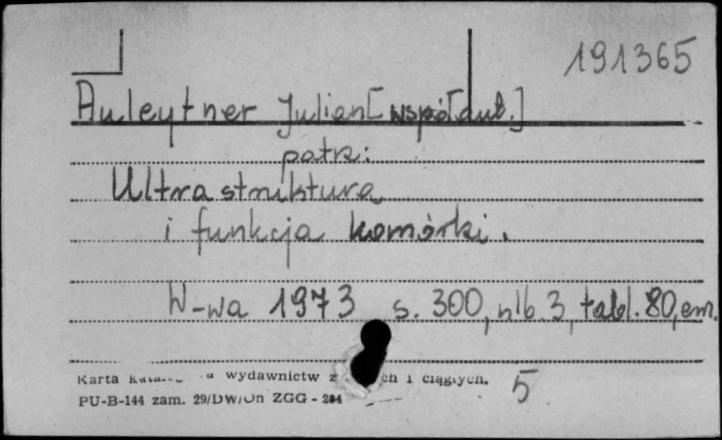 191365
Auleytner Julian [współaut.]
patrz:
Ultrastruktura
i funkcja komórki.
W-wa 1973 s. 300, nlb. 3, tabl. 80, em.
Karta wydawnictw z ch i ciągłych. 5
PU-B-144 zam. 29/DW/On ZGG - 284